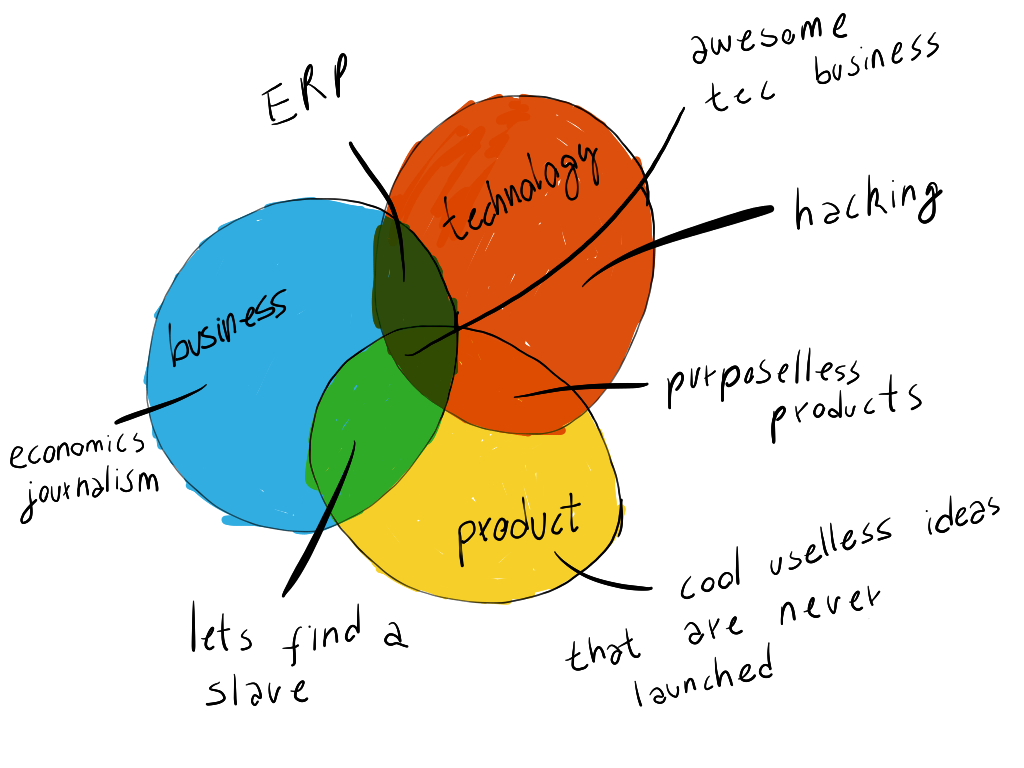 awesome
tec business
ERP
technology
hacking
business
purposelless
products
economics
journalism
product
cool uselless ideas
that are never
launched
lets find a
slave